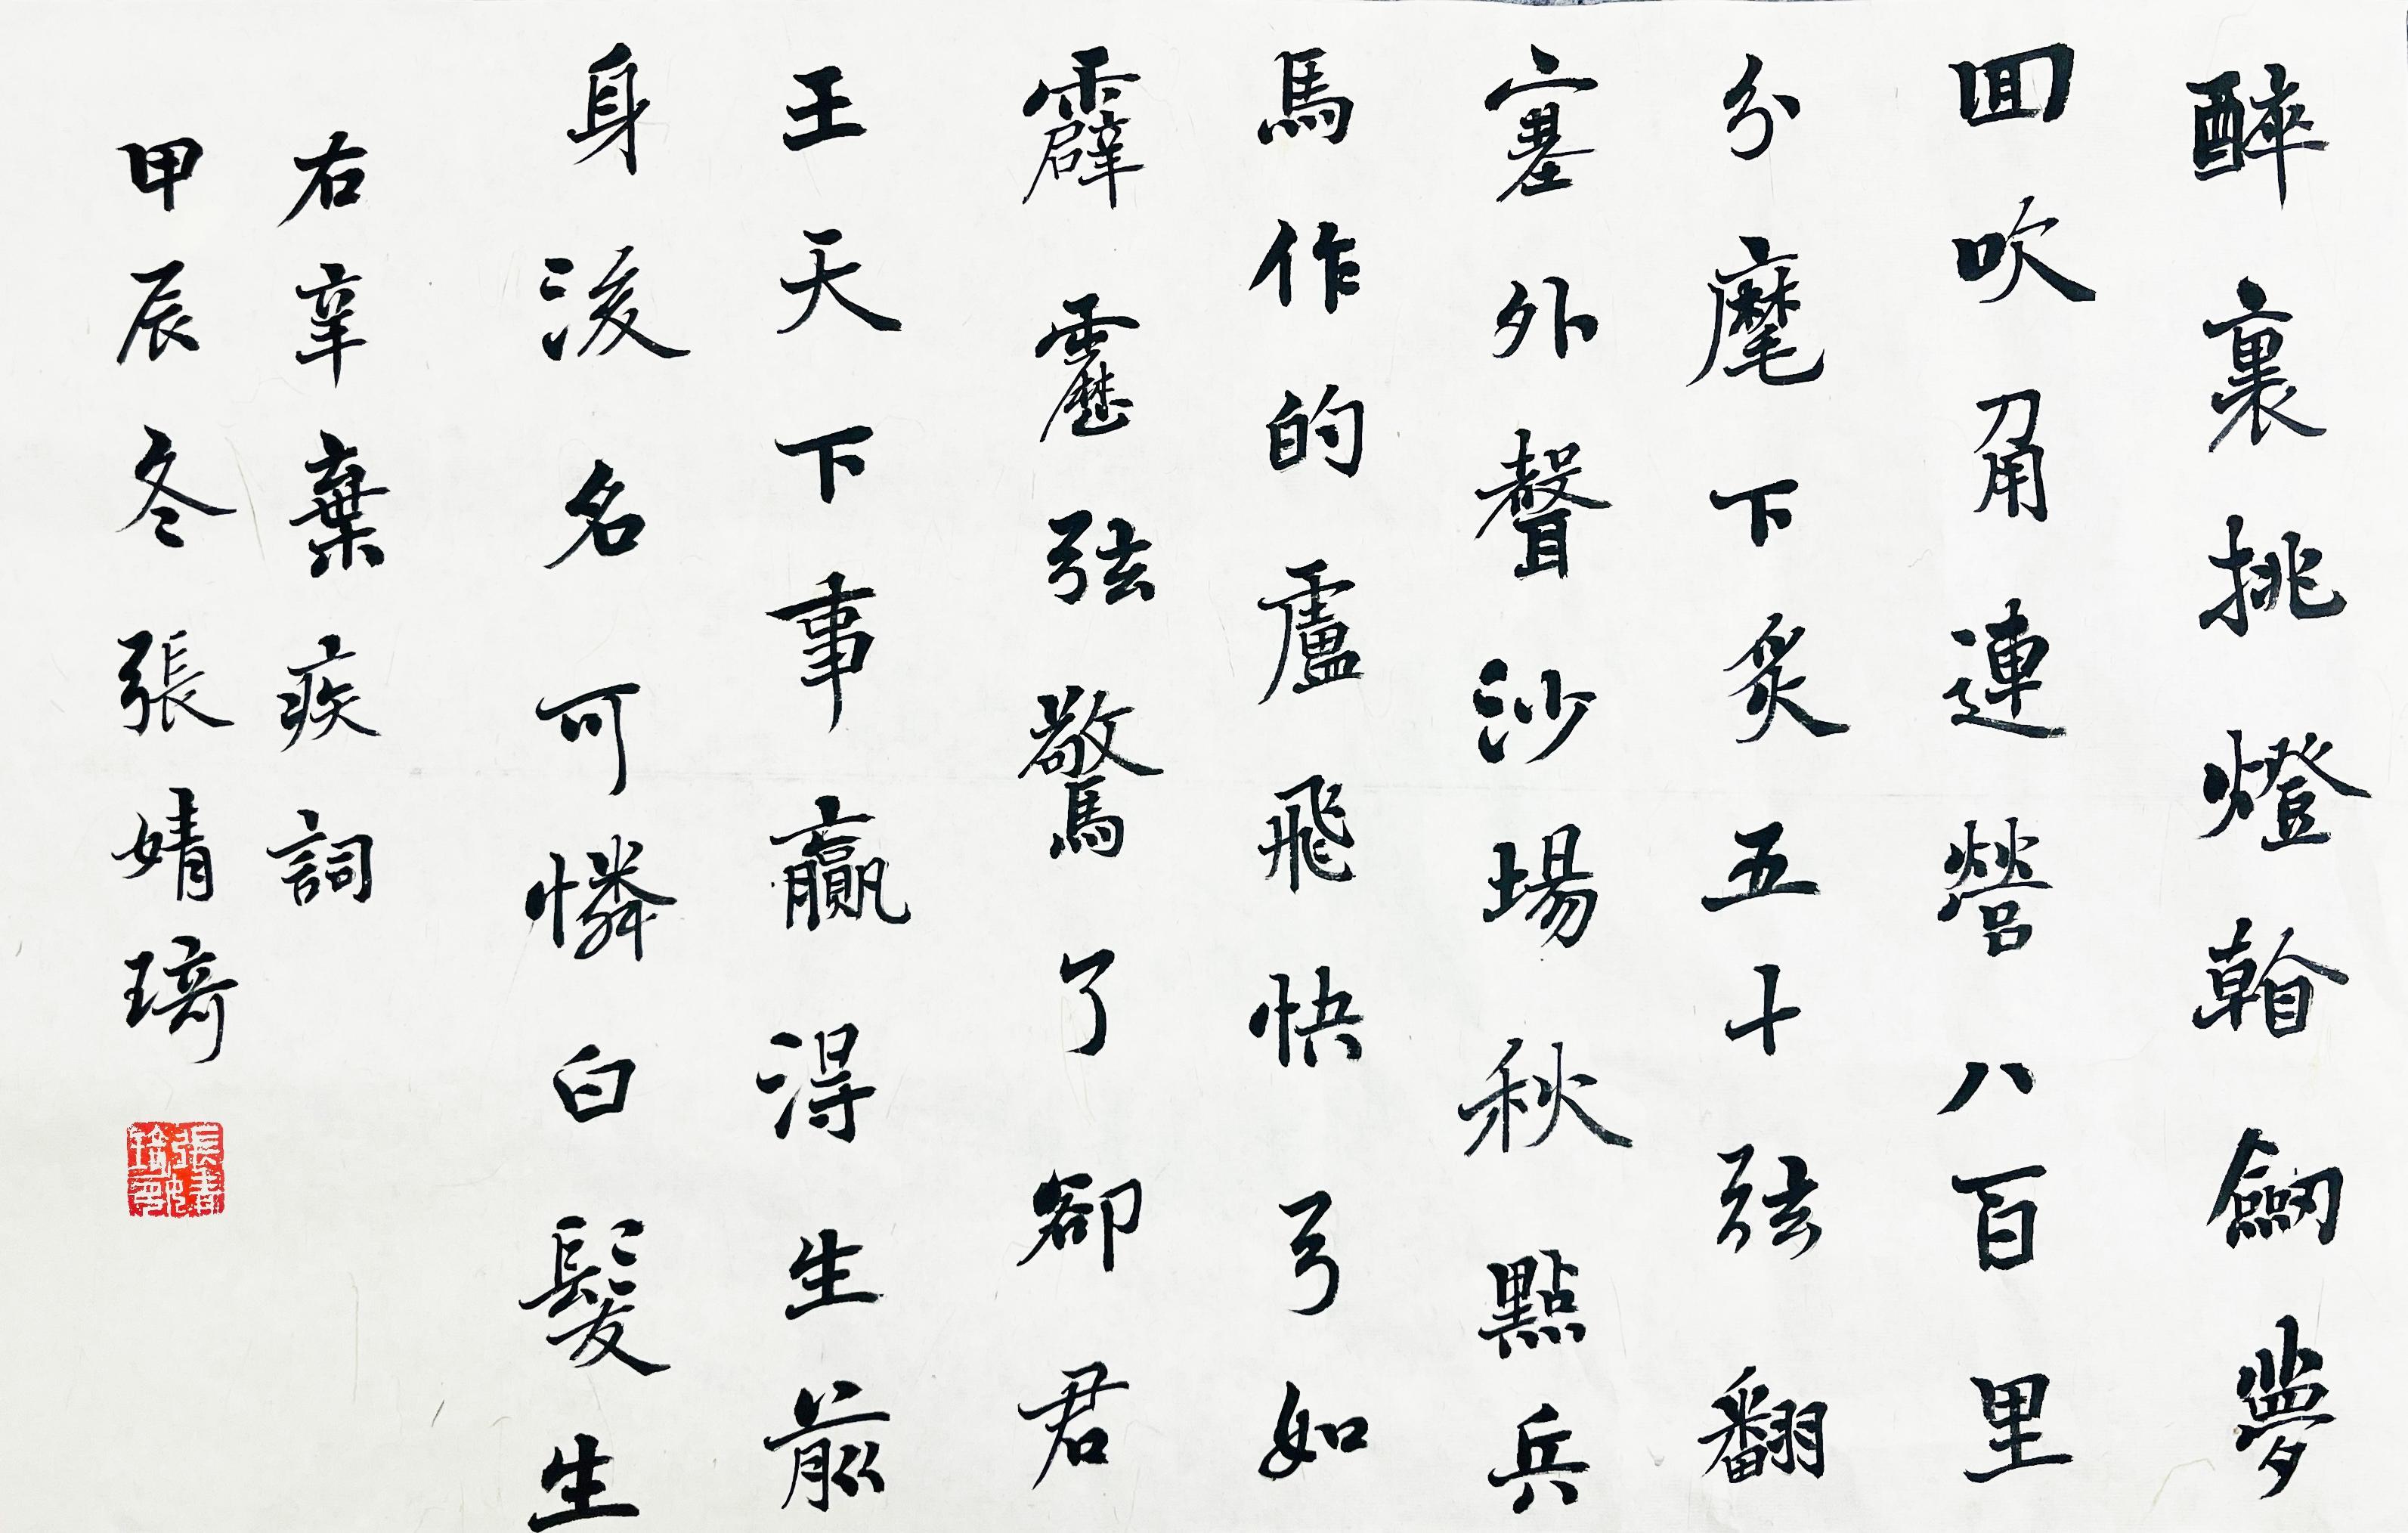 醉裏挑燈看劒夢
回吹角連營八百里
分麾下炙五十弦翻
塞外聲沙場秋點兵
馬作的盧飛快弓如
霹靂弦驚了卻君
王天下事贏得生前
身後名可憐白髮生
右辛棄疾詞
甲辰冬張婧琦